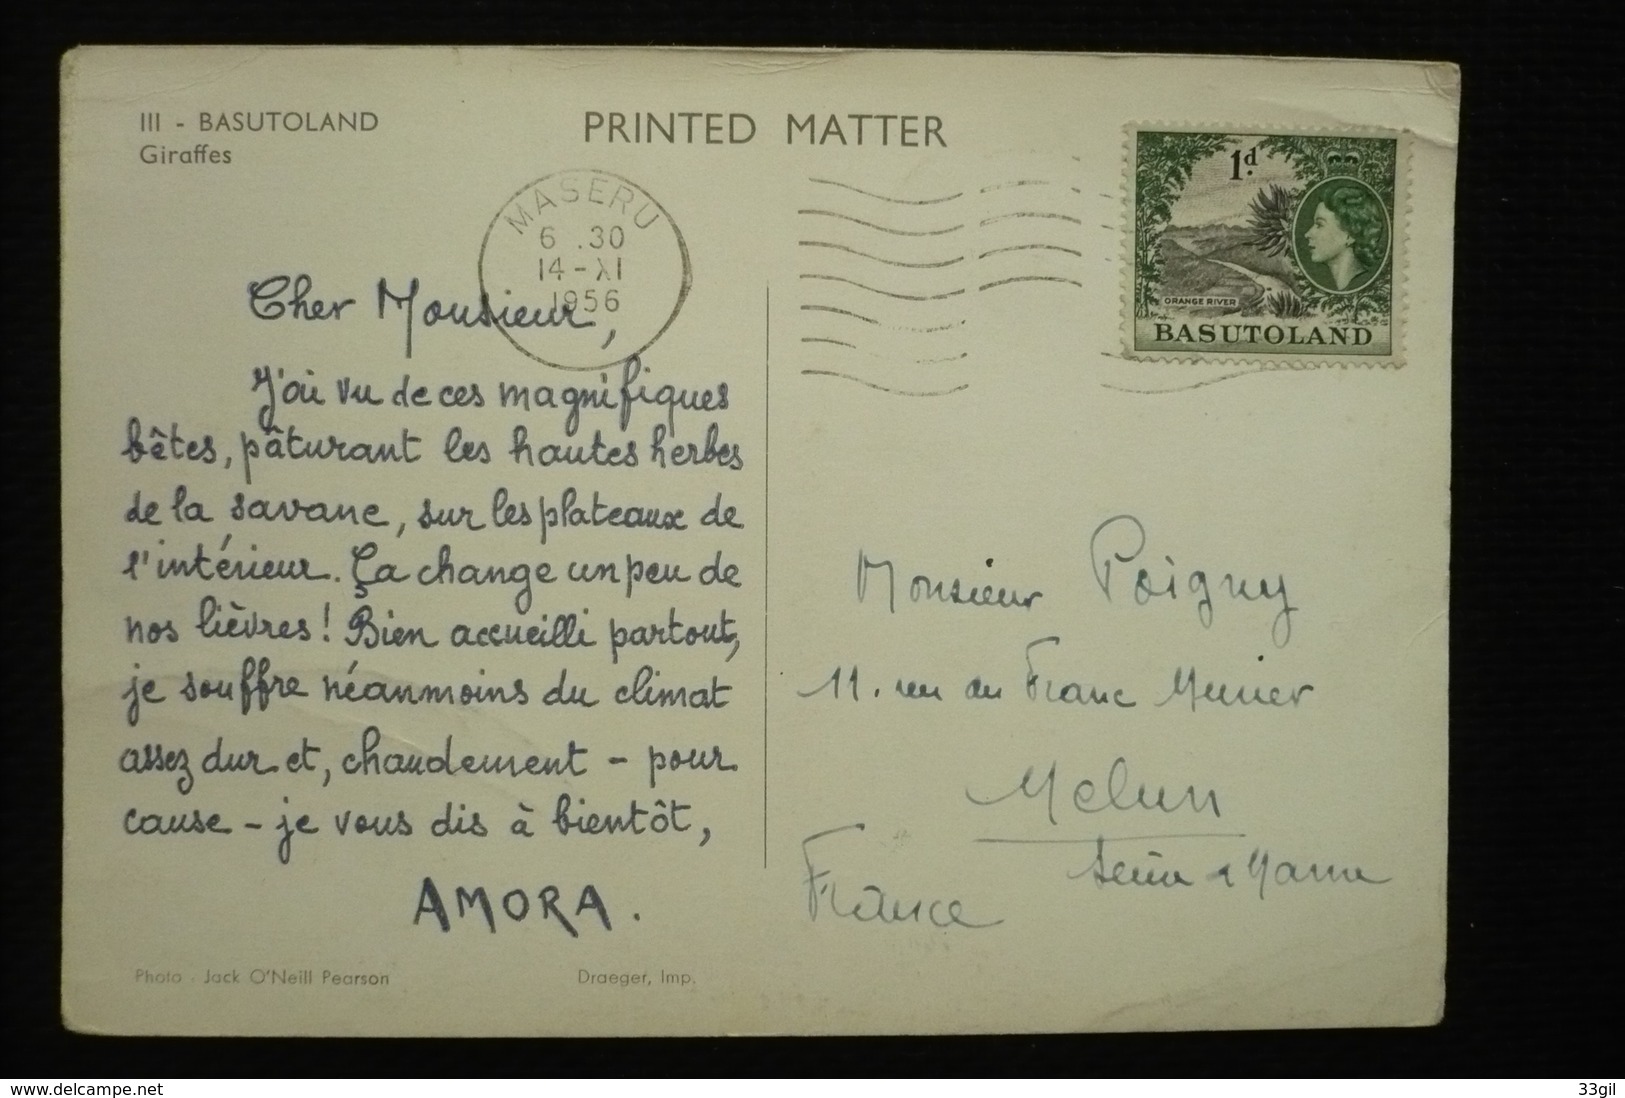 III - BASUTOLAND
Giraffes
PRINTED MATTER
MASERU
6 .30
14-XI
1956
1d.
ORANGE RIVER
BASUTOLAND
Cher Monsieur,
J'ai vu de ces magnifiques
bêtes, pâturant les hautes herbes
de la savane, sur les plateaux de
l'intérieur. Ça change un peu de
nos lièvres! Bien accueilli partout,
je souffre néanmoins du climat
assez dur et, chaudement - pour
cause - je vous dis à bientôt,
AMORA.
Monsieur Poigny
11. rue du Franc Murier
Melun
Seine & Marne
France
Photo - Jack O'Neill Pearson
Draeger, Imp.
www.delcampe.net
33gil